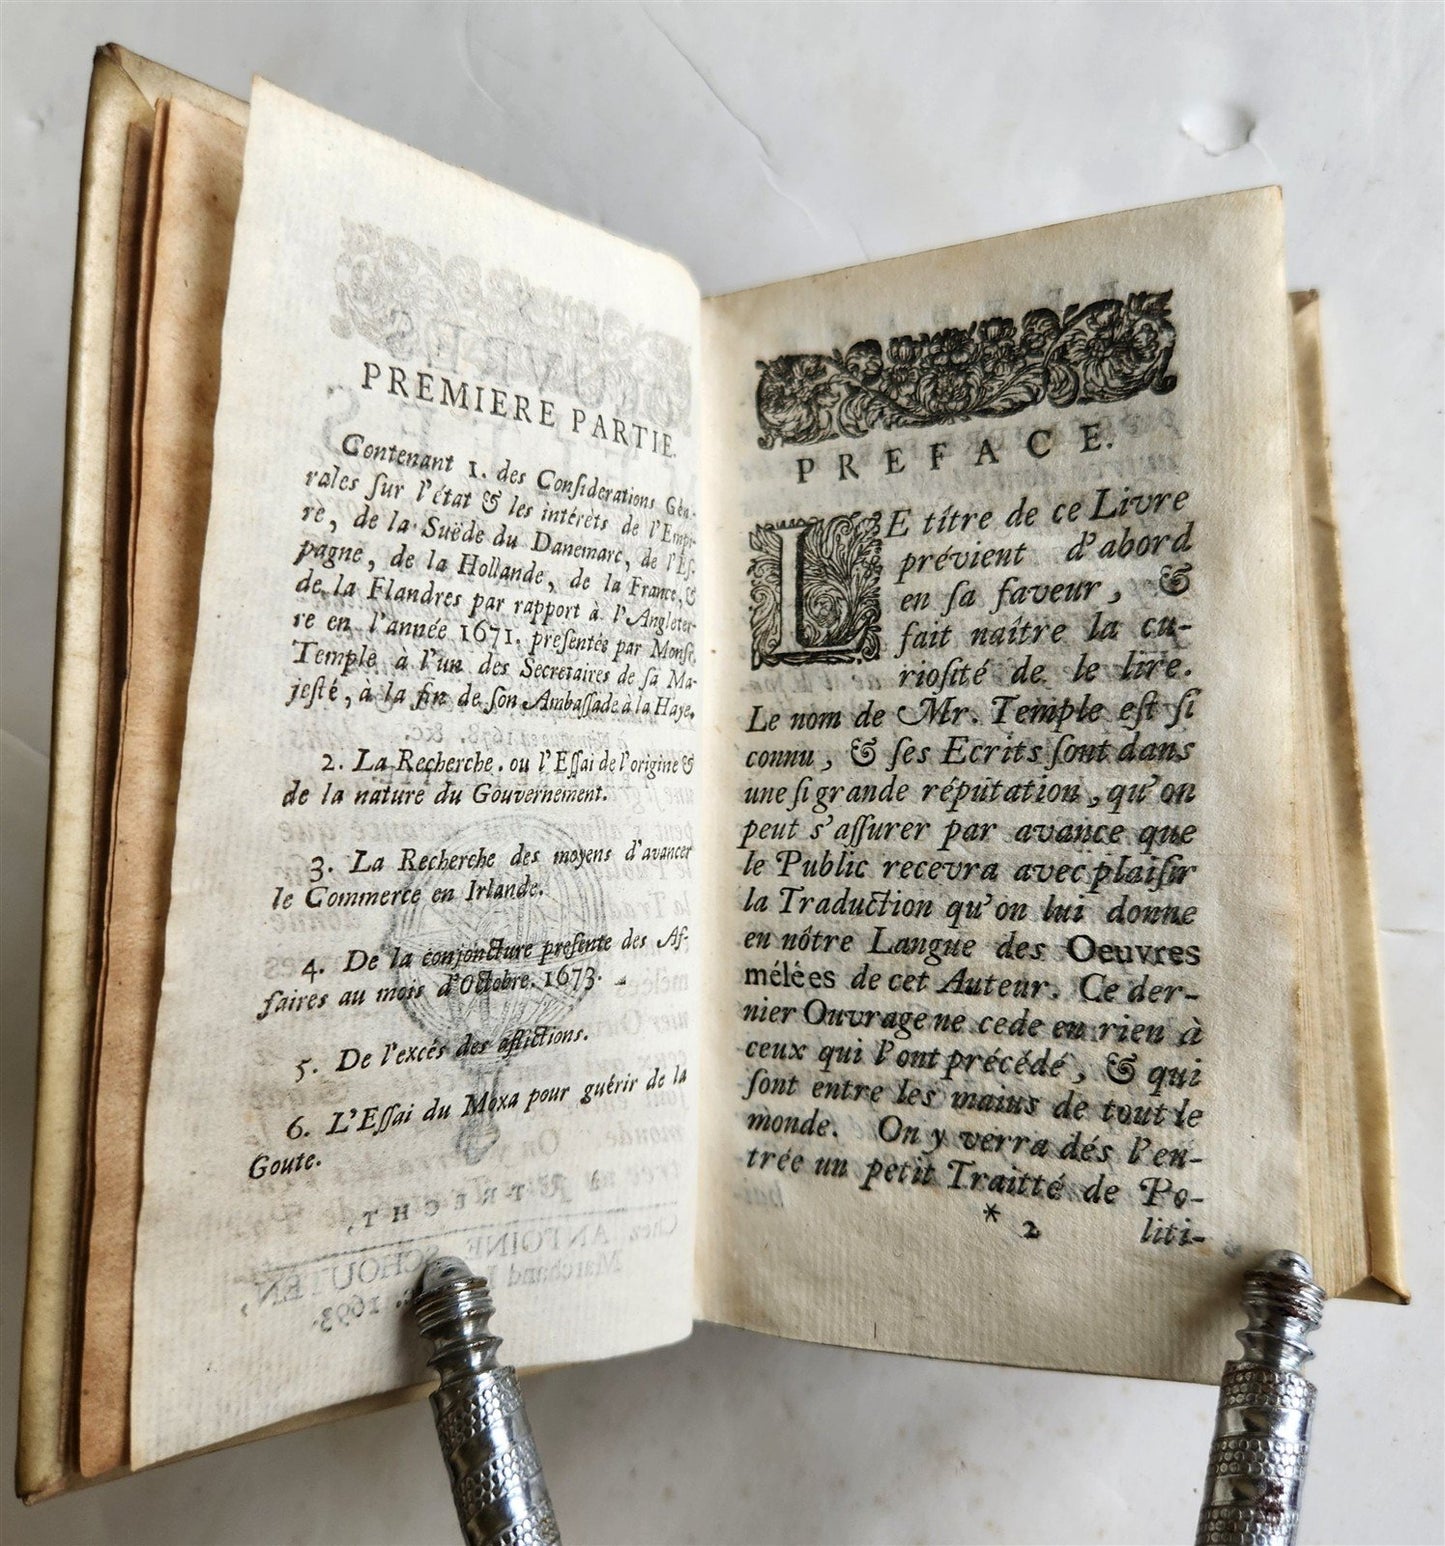 PREMIERE PARTIE.
Contenant 1. des Considerations Géné-
rales sur l'état & les intérêts de l'Empi-
re, de la Suëde du Danemarc, de l'Es-
pagne, de la Hollande, de la France, &
de la Flandres par rapport à l'Angleter-
re en l'année 1671. presentés par Monsr.
Temple à l'un des Secretaires de sa Ma-
jesté, à la fin de son Ambassade à la Haye.
2. La Recherche, ou l'Essai de l'origine &
de la nature du Gouvernement.
3. La Recherche des moyens d'avancer
le Commerce en Irlande.
4. De la conjoncture presente des Af-
faires au mois d'Octobre. 1673.
5. De l'excés des aflictions.
6. L'Essai du Moxa pour guérir de la
Goute.
PREFACE.
LE titre de ce Livre
prévient d'abord
en sa faveur, &
fait naître la cu-
riosité de le lire.
Le nom de Mr. Temple est si
connu, & ses Ecrits sont dans
une si grande réputation, qu'on
peut s'assurer par avance que
le Public recevra avec plaisir
la Traduction qu'on lui donne
en nôtre Langue des Oeuvres
mélées de cet Auteur. Ce der-
nier Ouvrage ne cede en rien à
ceux qui l'ont précédé, & qui
sont entre les mains de tout le
monde. On y verra dés l'en-
trée un petit Traitté de Po-
* 2 liti-